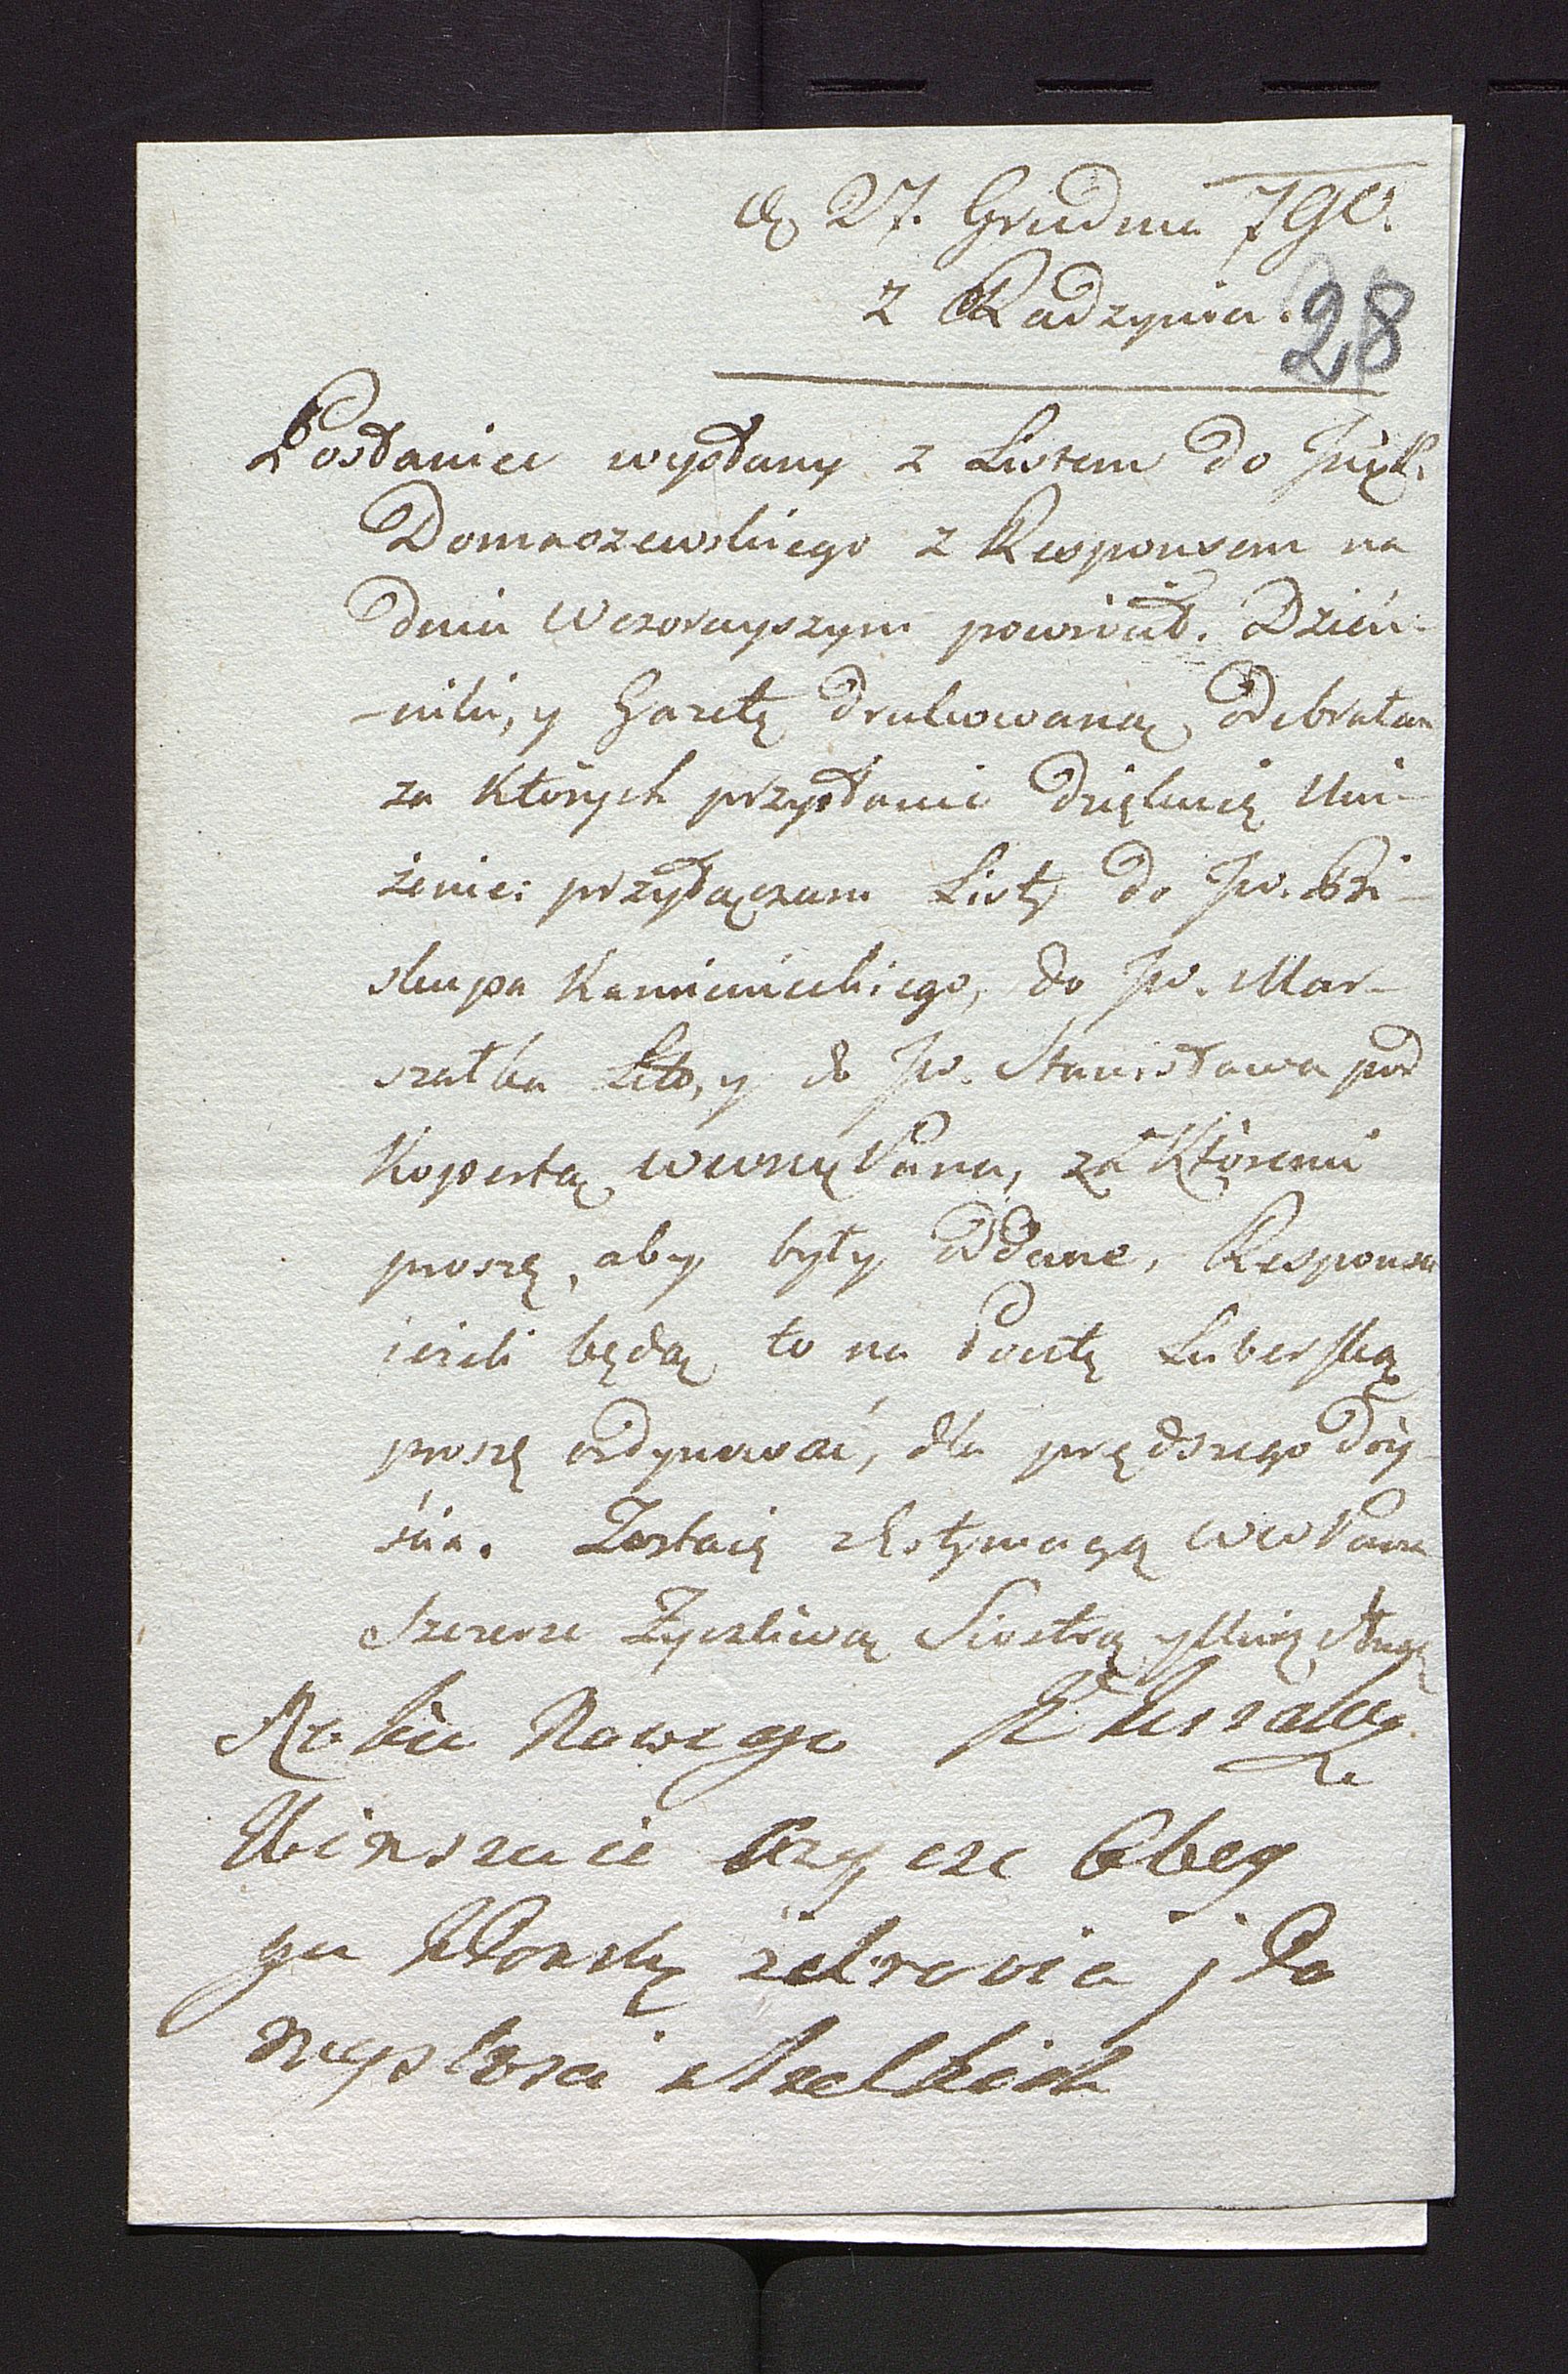 d 27. Grudnia 790.
z Radzynia.
28
Posłaniec wysłany z Listem do
Domaszewskiego z Responsem na
dniu wczorayszym powrócił. Dzień-
-niki, y Gazetę drukowaną odebrałam
za których przysłanie dziękuię Uni-
żenie: przyłączam Listy do Jw. Bi-
skupa Kamienieckiego, do Jw. Mar-
szałka Litto, y do Jw. Stanisława pod
Kopertą Pana, za któremi
proszę, aby były oddane, Responsa
ieżeli będą to na Pocztę Luberską
proszę ordynować, dla prędszego doy-
ścia. Zostaię z Estymacyą WWPana
szczerze Życzliwą Siostrą y Uniż Sługą
Roku Nowego
Winszuie życze
go zdrowia j Po
myslosci